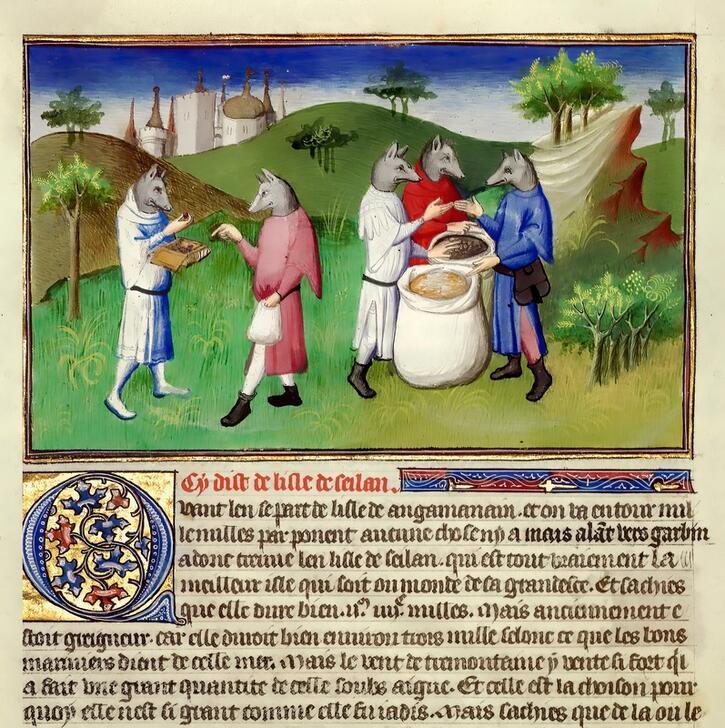 Cy dist de lisle de seilan.
Quant len se part de lisle de angamanam. et on va entour mil
le milles par ponent aucune chose ny a mais alant vers garbin
adonc treuue len lisle de seilan. qui est tout vraiement la
meilleur isle qui soit ou monde de sa grandesce. Et sachies
que elle dure bien .ijᵐ. iiijᶜ. milles. Mais anciennement e
stoit greigneur. car elle duroit bien enuiron trois mille selonc ce que les bons
marmiers dient de celle mer. Mais le vent de tremontaine y vente si fort qͥl
a fait vne grant quantite de celle soubs aigue. Et celle est la choison pour
quoy elle nest si grant comme elle fu iadis. Mais sachies que de la ou le